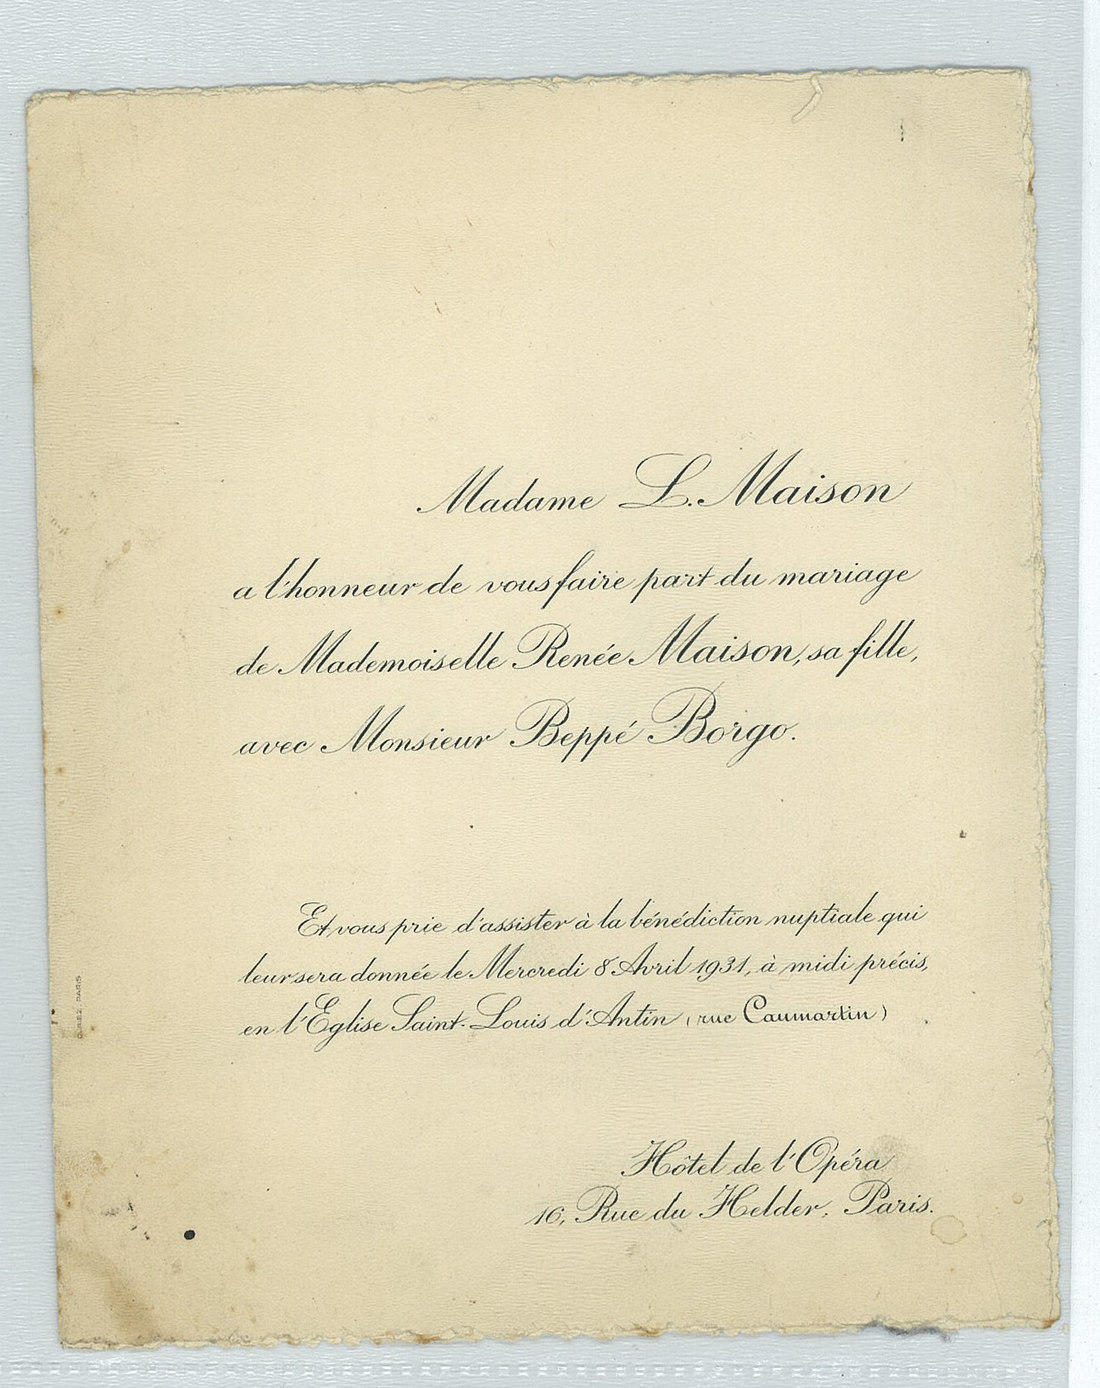 Madame L. Maison
a l'honneur de vous faire part du mariage
de Mademoiselle Renée Maison, sa fille,
avec Monsieur Beppé Borgo.
Et vous prie d'assister à la bénédiction nuptiale qui
leur sera donnée le Mercredi 8 Avril 1931, à midi précis,
en l'Eglise Saint-Louis d'Antin (rue Caumartin)
Hôtel de l'Opéra
16, Rue du Helder, Paris.
PARIS